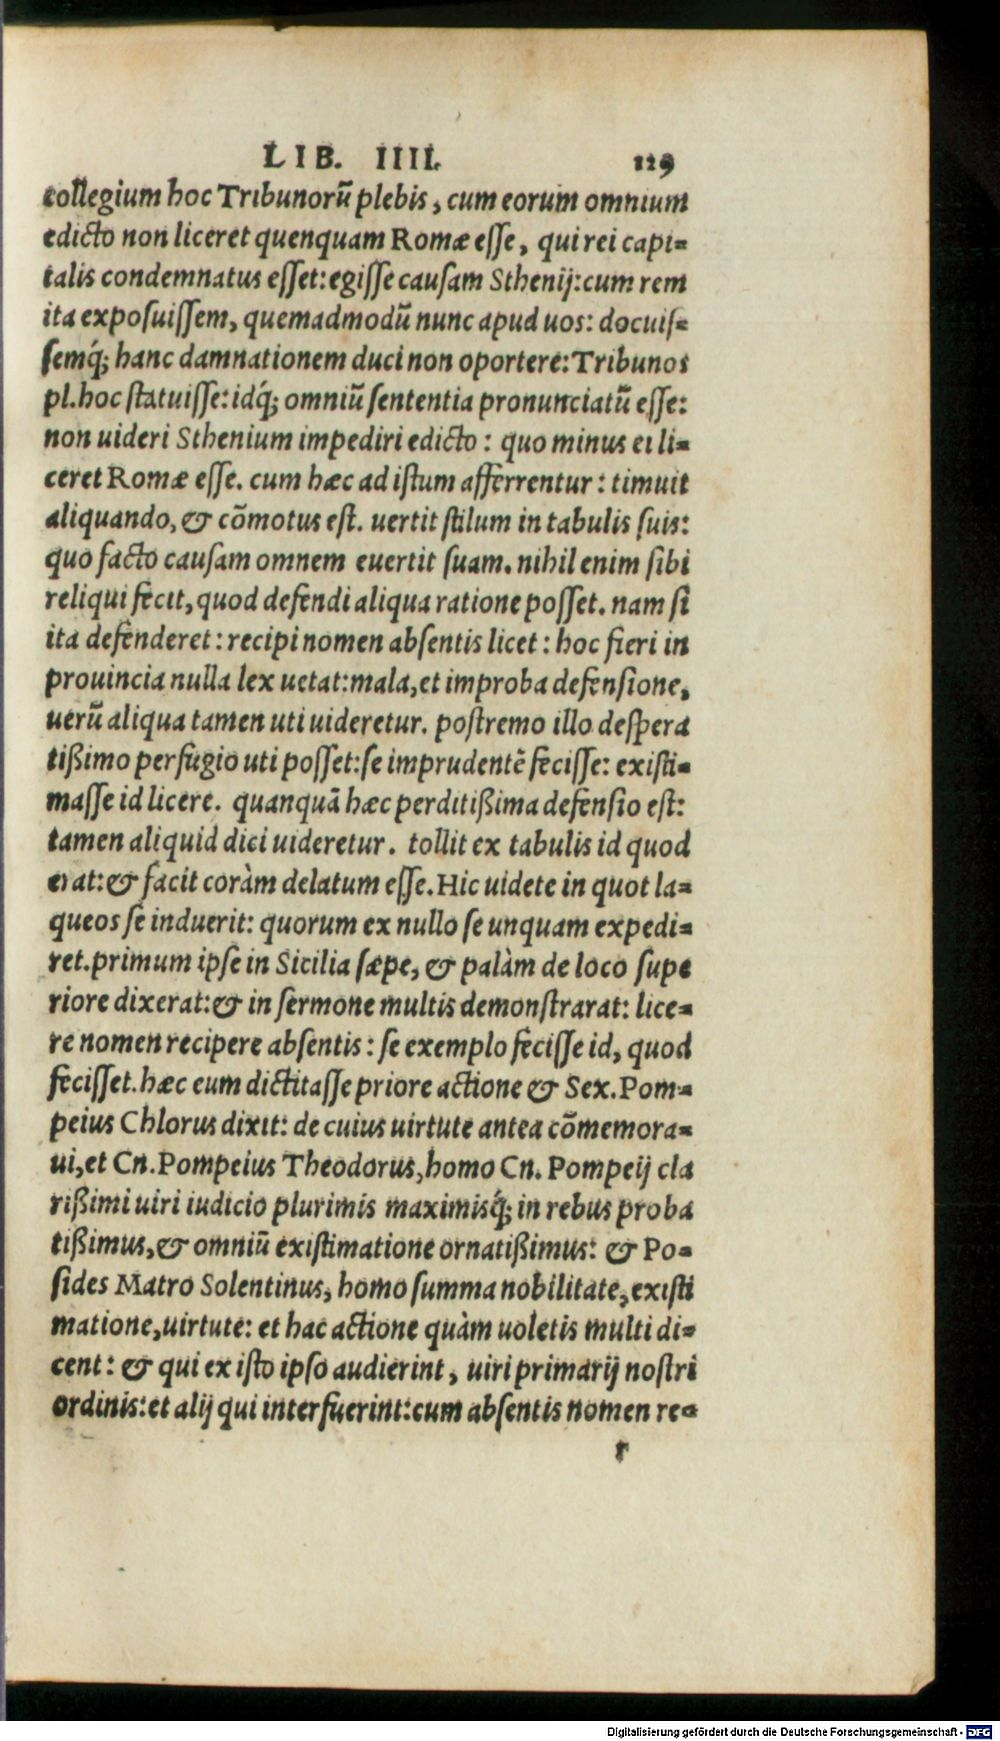 LIB. IIII. 129
collegium hoc Tribunorũ plebis, cum eorum omnium
edicto non liceret quenquam Romæ eſſe, qui rei capi-
talis condemnatus eſſet: egiſſe cauſam Sthenij: cum rem
ita expoſuiſſem, quemadmodũ nunc apud uos: docuiſ-
ſemq́; hanc damnationem duci non oportere: Tribunos
pl. hoc ſtatuiſſe: idq́; omniũ ſententia pronunciatũ eſſe:
non uideri Sthenium impediri edicto: quo minus ei li-
ceret Romæ eſſe. cum hæc ad iſtum afferrentur: timuit
aliquando, & cõmotus eſt. uertit ſtilum in tabulis ſuis:
quo facto cauſam omnem euertit ſuam. nihil enim ſibi
reliqui fecit, quod defendi aliqua ratione poſſet. nam ſi
ita defenderet: recipi nomen abſentis licet: hoc fieri in
prouincia nulla lex uetat: mala, et improba defenſione,
uerũ aliqua tamen uti uideretur. poſtremo illo deſpera
tißimo perfugio uti poſſet: ſe imprudentẽ feciſſe: exiſti-
maſſe id licere. quanquã hæc perditißima defenſio eſt:
tamen aliquid dici uideretur. tollit ex tabulis id quod
erat: & facit coràm delatum eſſe. Hic uidete in quot la-
queos ſe induerit: quorum ex nullo ſe unquam expedi-
ret. primum ipſe in Sicilia ſæpe, & palàm de loco ſupe
riore dixerat: & in ſermone multis demonſtrarat: lice-
re nomen recipere abſentis: ſe exemplo feciſſe id, quod
feciſſet. hæc eum dictitaſſe priore actione & Sex. Pom-
peius Chlorus dixit: de cuius uirtute antea cõmemora-
ui, et Cn. Pompeius Theodorus, homo Cn. Pompeij cla
rißimi uiri iudicio plurimis maximisq́; in rebus proba
tißimus, & omniũ exiſtimatione ornatißimus: & Po-
ſides Matro Solentinus, homo ſumma nobilitate, exiſti
matione, uirtute: et hac actione quàm uoletis multi di-
cent: & qui ex iſto ipſo audierint, uiri primarij noſtri
ordinis: et alij qui interfuerint: cum abſentis nomen re-
r
Digitalisierung gefördert durch die Deutsche Forschungsgemeinschaft - DFG